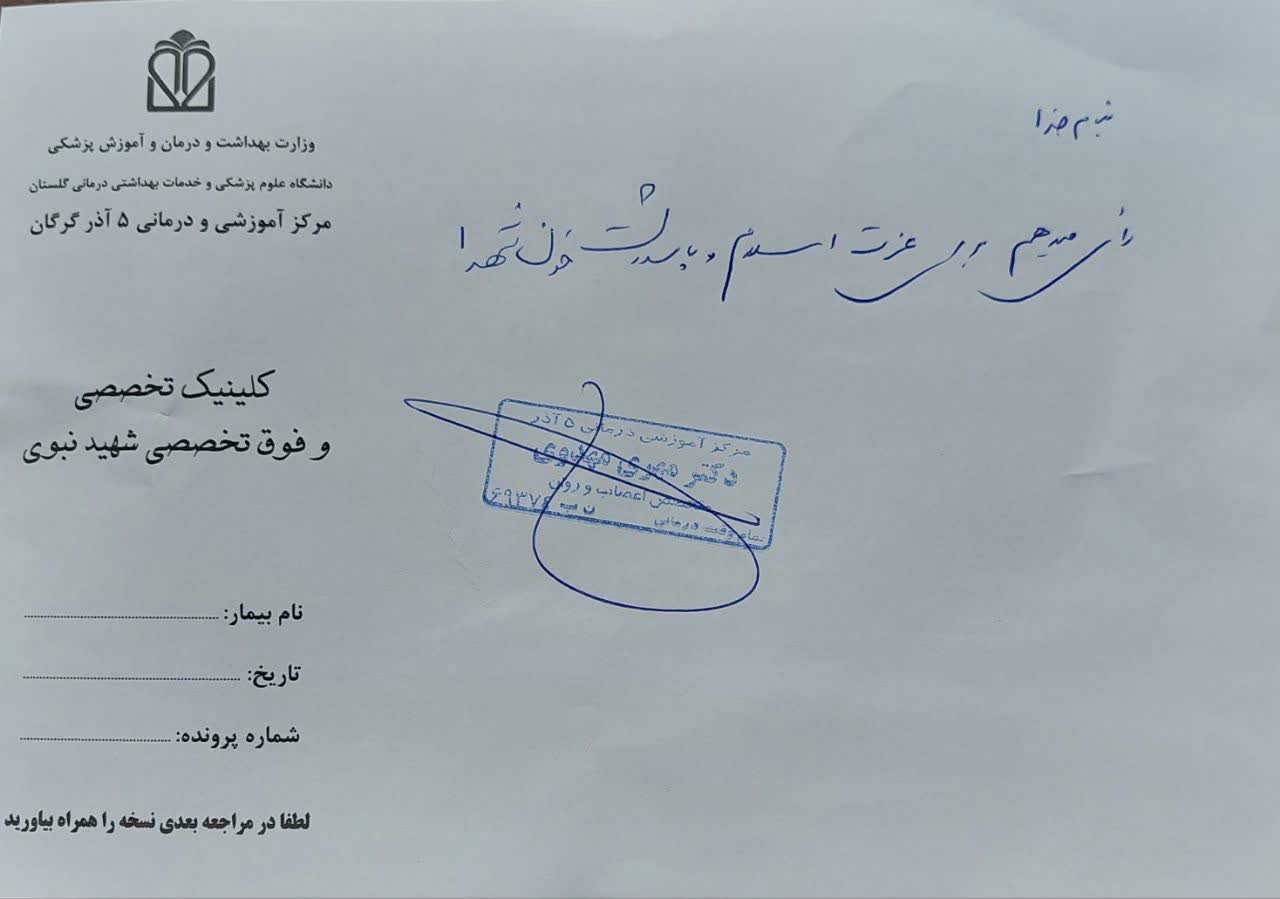 وزارت بهداشت و درمان و آموزش پزشکی
دانشگاه علوم پزشکی و خدمات بهداشتی درمانی گلستان
مرکز آموزشی و درمانی ۵ آذر گرگان
کلینیک تخصصی
و فوق تخصصی شهید نبوی
نام بیمار:
تاریخ:
شماره پرونده:
لطفا در مراجعه بعدی نسخه را همراه بیاورید
بنام خدا
رأی میدهم برای عزت اسلام و پاسداشت خون شهدا
مرکز آموزشی درمانی ۵ آذر
دکتر مهدوی
متخصص اعصاب و روان
تمام وقت درمانی